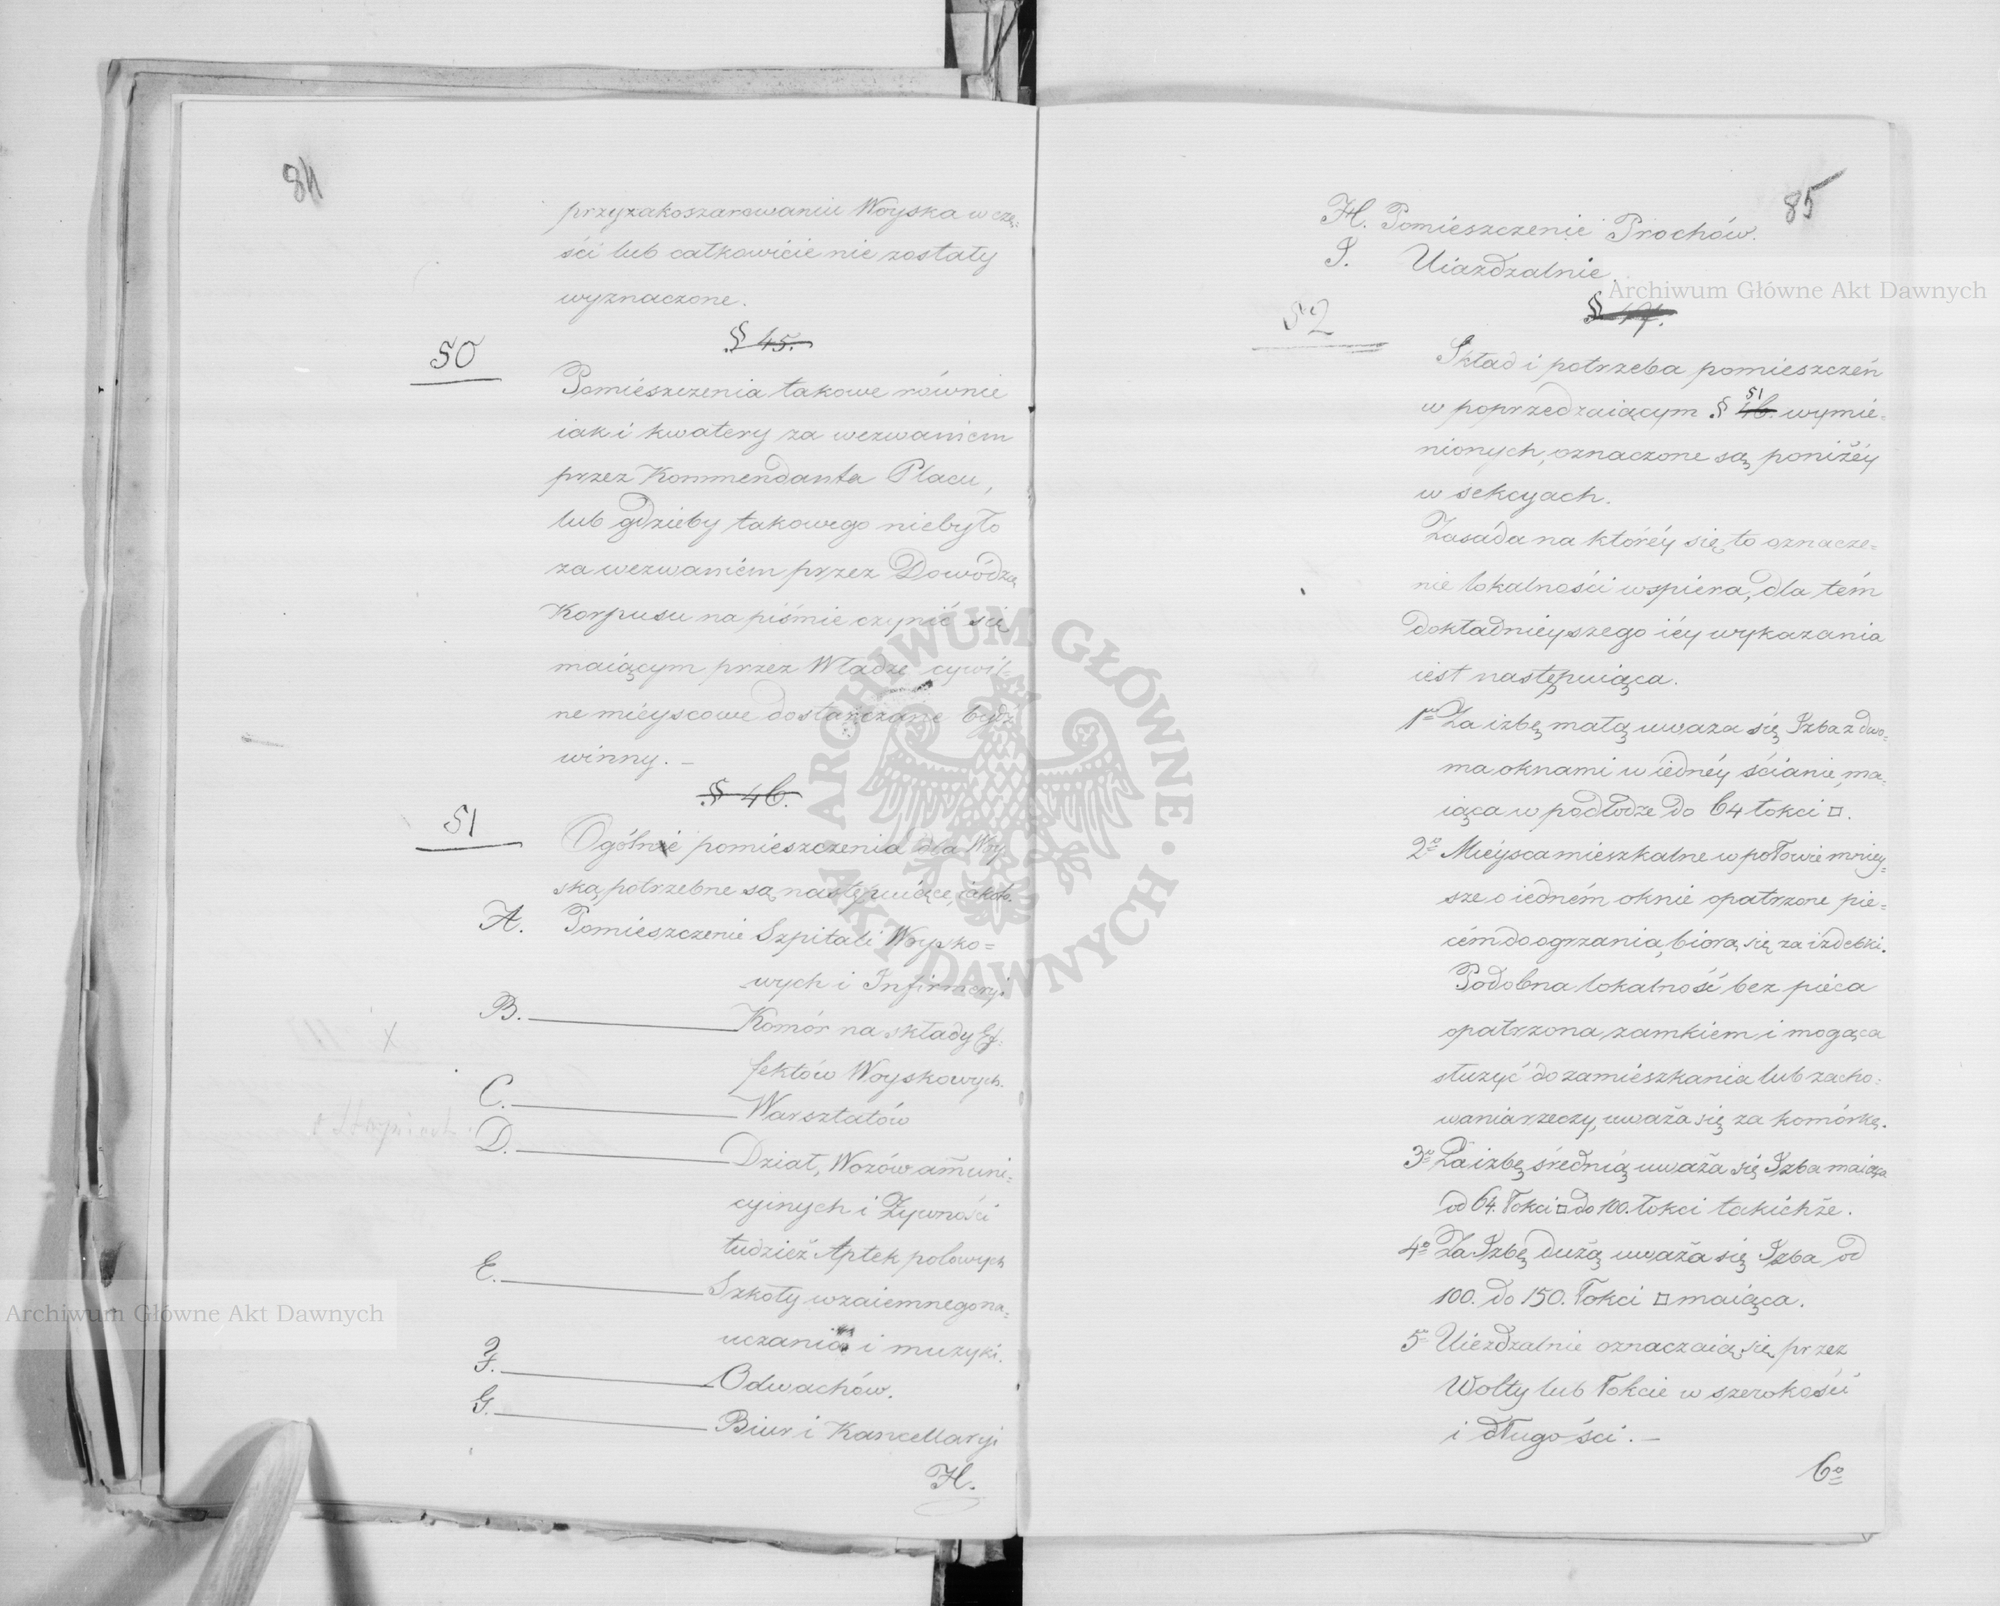 84
przy zakoszarowaniu Woyska w czę-
ści lub całkowicie nie zostały
wyznaczone.
§ 45.
50
Pomieszczenia takowe równie
iak i kwatery za wezwaniem
przez Kommendanta Placu,
lub gdzieby takowego niebyło
za wezwaniem przez Dowódzę
Korpusu na piśmie czynić się
maiącym przez Władze cywil-
ne mieyscowe dostarczane bydź
winny. –
§ 46.
51
Ogólnie pomieszczenia dla Woy
ska potrzebne są następuiące, iakoto.
A. Pomieszczenie Szpitali Woysko=
wych i Infirmeryi
B. Komór na składy Ef-
fektów Woyskowych.
C. Warsztatów
D. Dział, Wozów am̃uni-
cyinych i Żywności
tudzież Aptek polowych
E. Szkoły wzaiemnego na-
uczania i muzyki.
F. Odwachów.
G. Biur i Kancellaryi
H.
85
H. Pomieszczenie Prochów.
I. Uiazdzalnie.
§ 47.
52
Skład i potrzeba pomieszczeń
w poprzedzaiącym § 46. 51 wymie-
nionych, oznaczone są poniżéy
w sekcyach.
Zasada na któréy się to oznacze-
nie lokalności wspiera, dla tém
dokładnieyszego iéy wykazania
iest następuiąca.
1o Za izbę małą uważa się Izba z dwo-
ma oknami w iednéy ścianie, ma-
iąca w podłodze do 64 łokci □.
2o Mieysca mieszkalne w połowie mniey-
sze o iedném oknie opatrzone pie-
cém do ogrzania, biorą się za izdebki.
Podobna lokalność bez pieca
opatrzona zamkiem i mogąca
służyć do zamieszkania lub zacho-
wania rzeczy, uważa się za komórkę.
3o Za izbę średnią uważa się Izba maiąca
od 64. łokci □ do 100. łokci takichże.
4o Za Izbę dużą uważa się Izba od
100. do 150. łokci □ maiąca.
5o Uiezdzalnie oznaczaią się przez
Wolty lub łokcie w szerokości
i długości. –
6o
Archiwum Główne Akt Dawnych
Archiwum Główne Akt Dawnych
ARCHIWUM GŁÓWNE AKT DAWNYCH